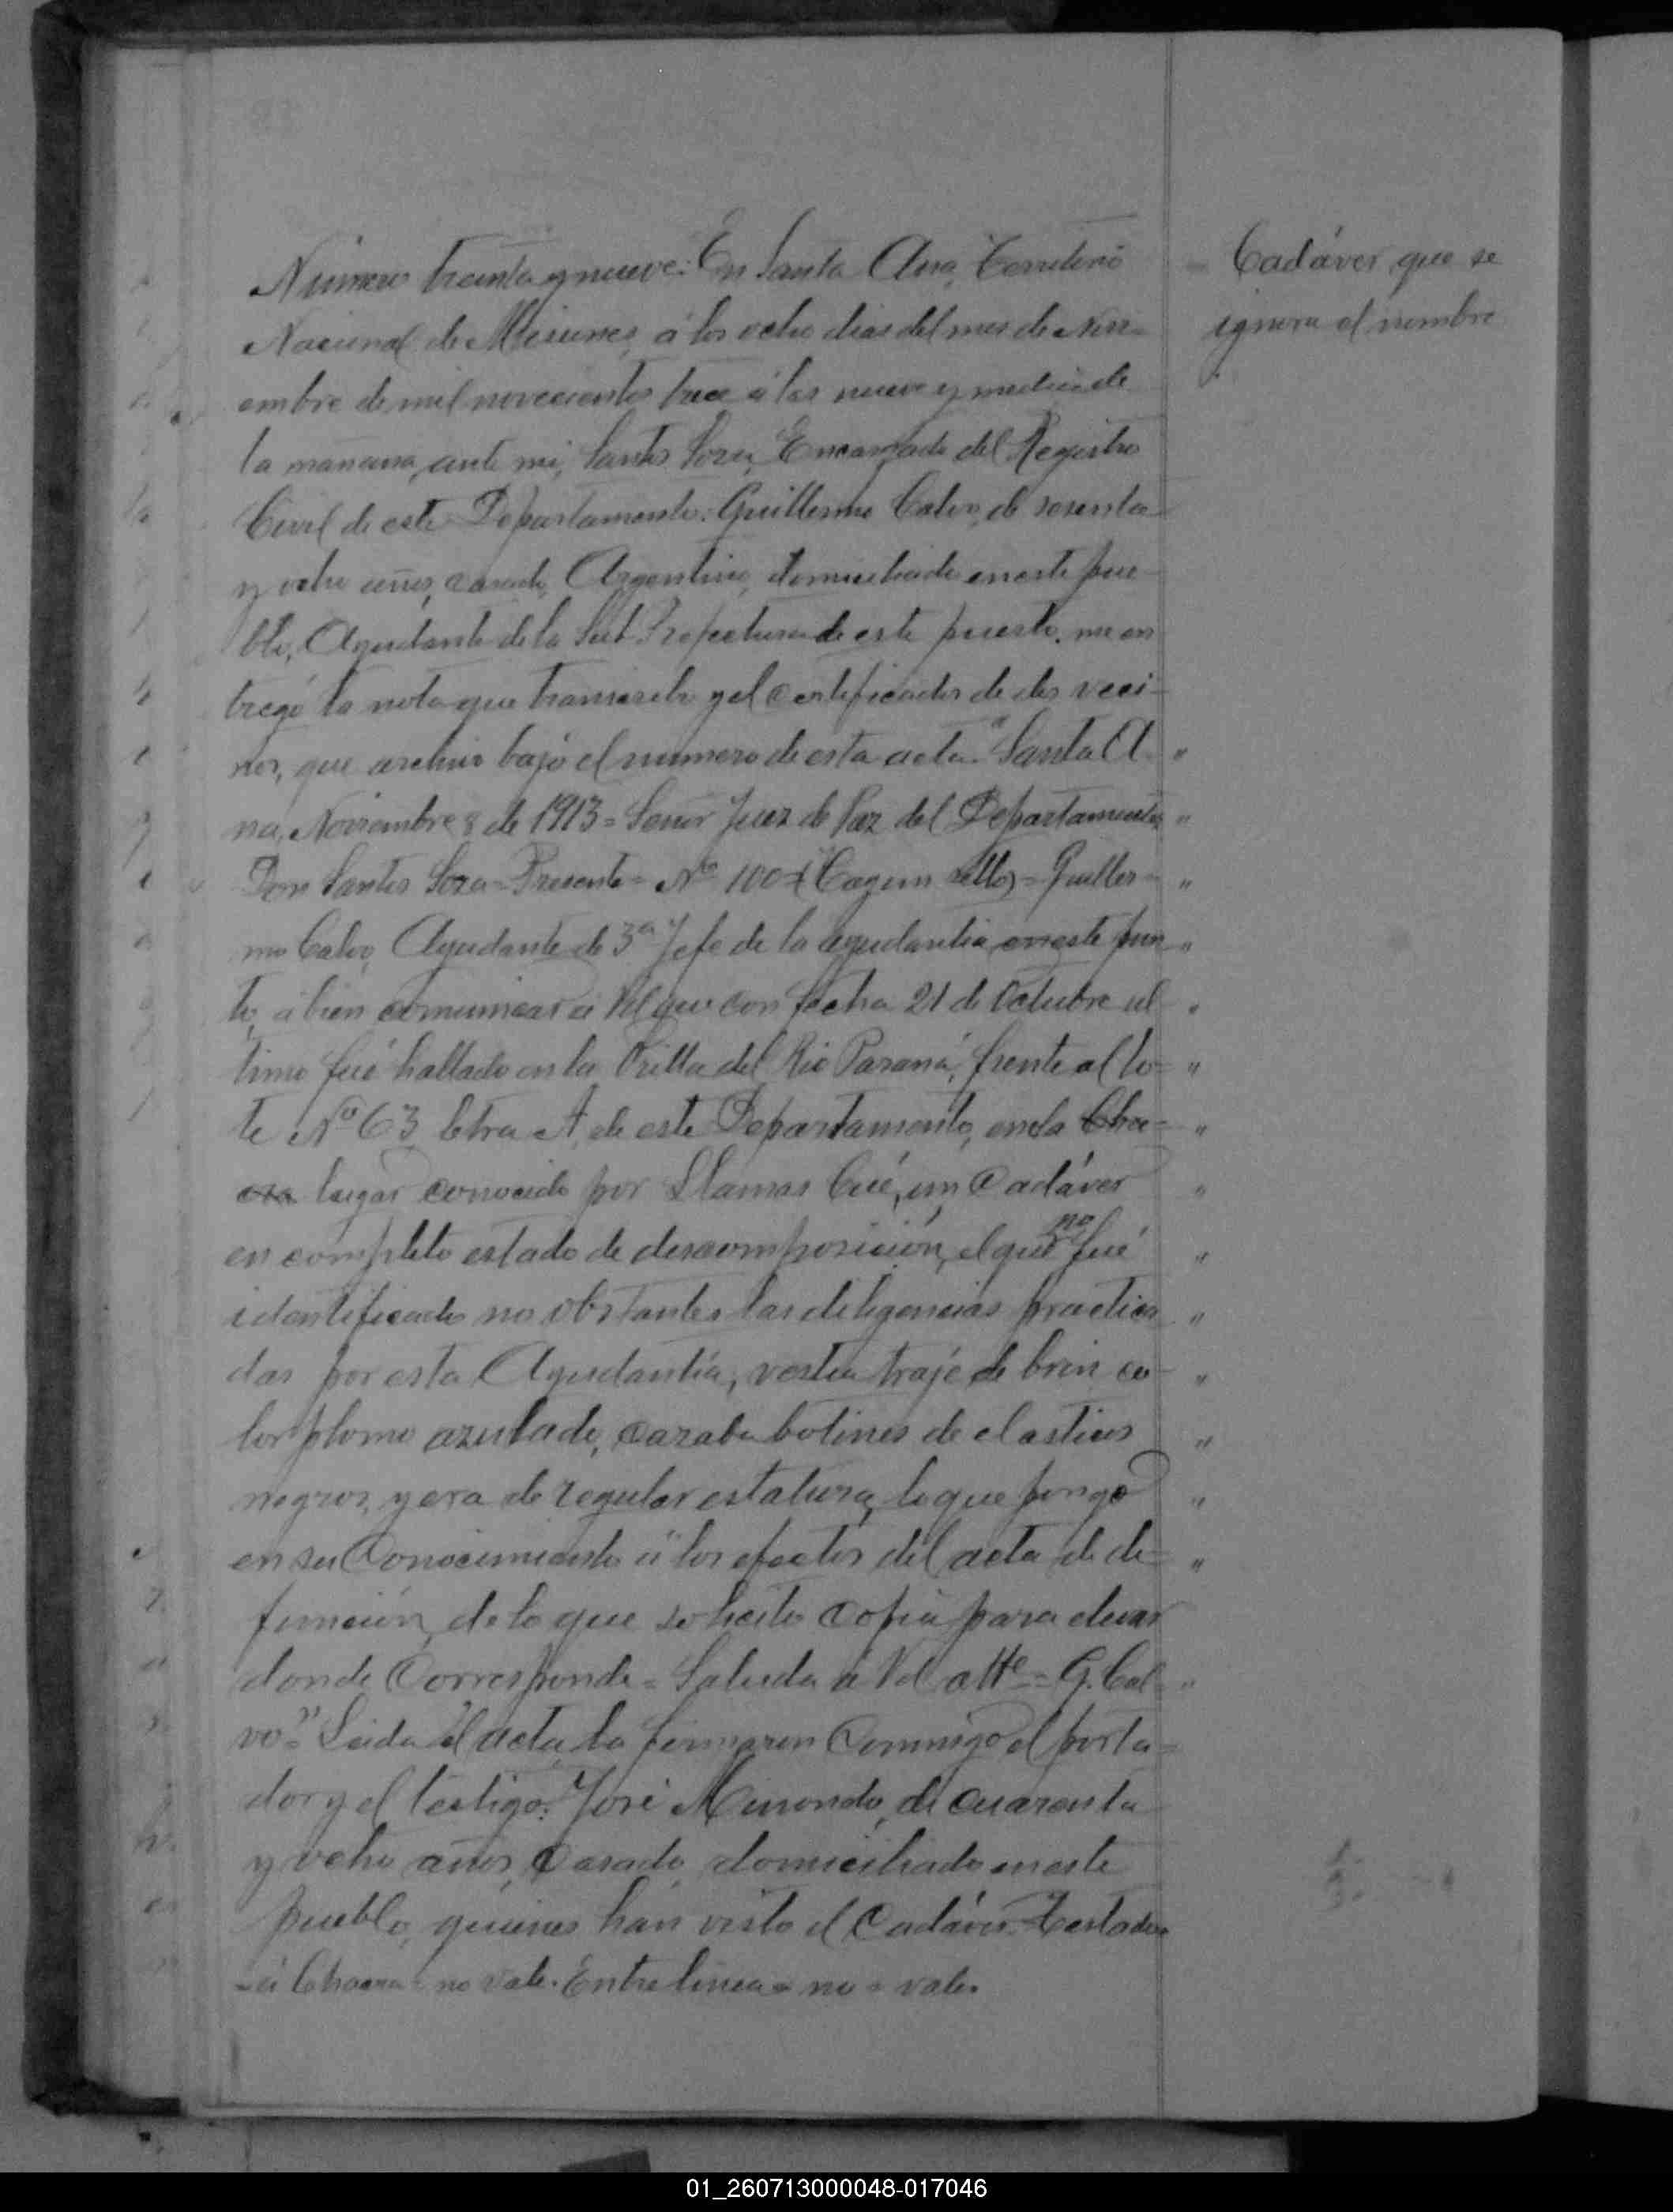 Número treinta y nueve: En Santa Ana, Territorio
Nacional de Misiones, á los ocho dias del mes de Novi-
embre de mil novecientos trece á las nueve y media de
la mañana, ante mi, Santos Soza, Encargado del Registro
Civil de este Departamento: Guillermo Calvo, de sesenta
y ocho años, casado, Argentino, domiciliado en este pue-
blo, Ayudante de la Sub-Prefectura de este puerto, me en
tregó la nota que transcribo y el certificados de dos veci-
nos, que archivo bajo el numero de esta acta. "Santa A- "
na, Noviembre 8 de 1913 = Señor Juez de Paz del Departamento "
Don Santos Soza = Presente = Nº 100 = (Hay un sello) = Guiller= "
mo Calvo, Ayudante de 3ª Jefe de la ayudantia en este pun "
to, á bien comunicar á Vd que con fecha 21 de Octubre ul "
timo fué hallado en la Orilla del Rio Paraná, frente al lo= "
te Nº 63 letra A, de este Departamento, en la Cha= "
cra lugar conocido por Llamas Cué, un Cadáver "
en completo estado de descomposición, el que no fué "
identificado no obstantes las diligencias practica "
das por esta Ayudantía, vestia traje de brin co- "
lor plomo azulado, cazaba botines de elasticos "
negros, y era de regular estatura, lo que pongo "
en su Conocimiento á los efectos del acta de de= "
función, de lo que solicito copia para elevar
donde Corresponde = Saluda á Vd atte = G. Cal= "
vo" = Leida el acta, la firmaron Conmigo el porta=
dor y el testigo: José Minondo, de cuarenta
y ocho años, Casado, domiciliado en este
pueblo, quienes han visto el Cadáver. Testado=
=a Chacra = no vale. Entre linea = no = vale.
Cadáver que se
ignora el nombre
01_260713000048-017046